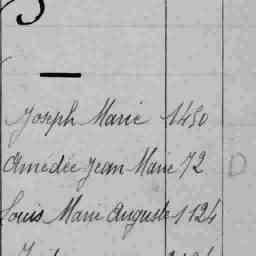 Joseph Marie 1450
Amédée Jean Marie 72 D
Louis Marie Auguste 1124